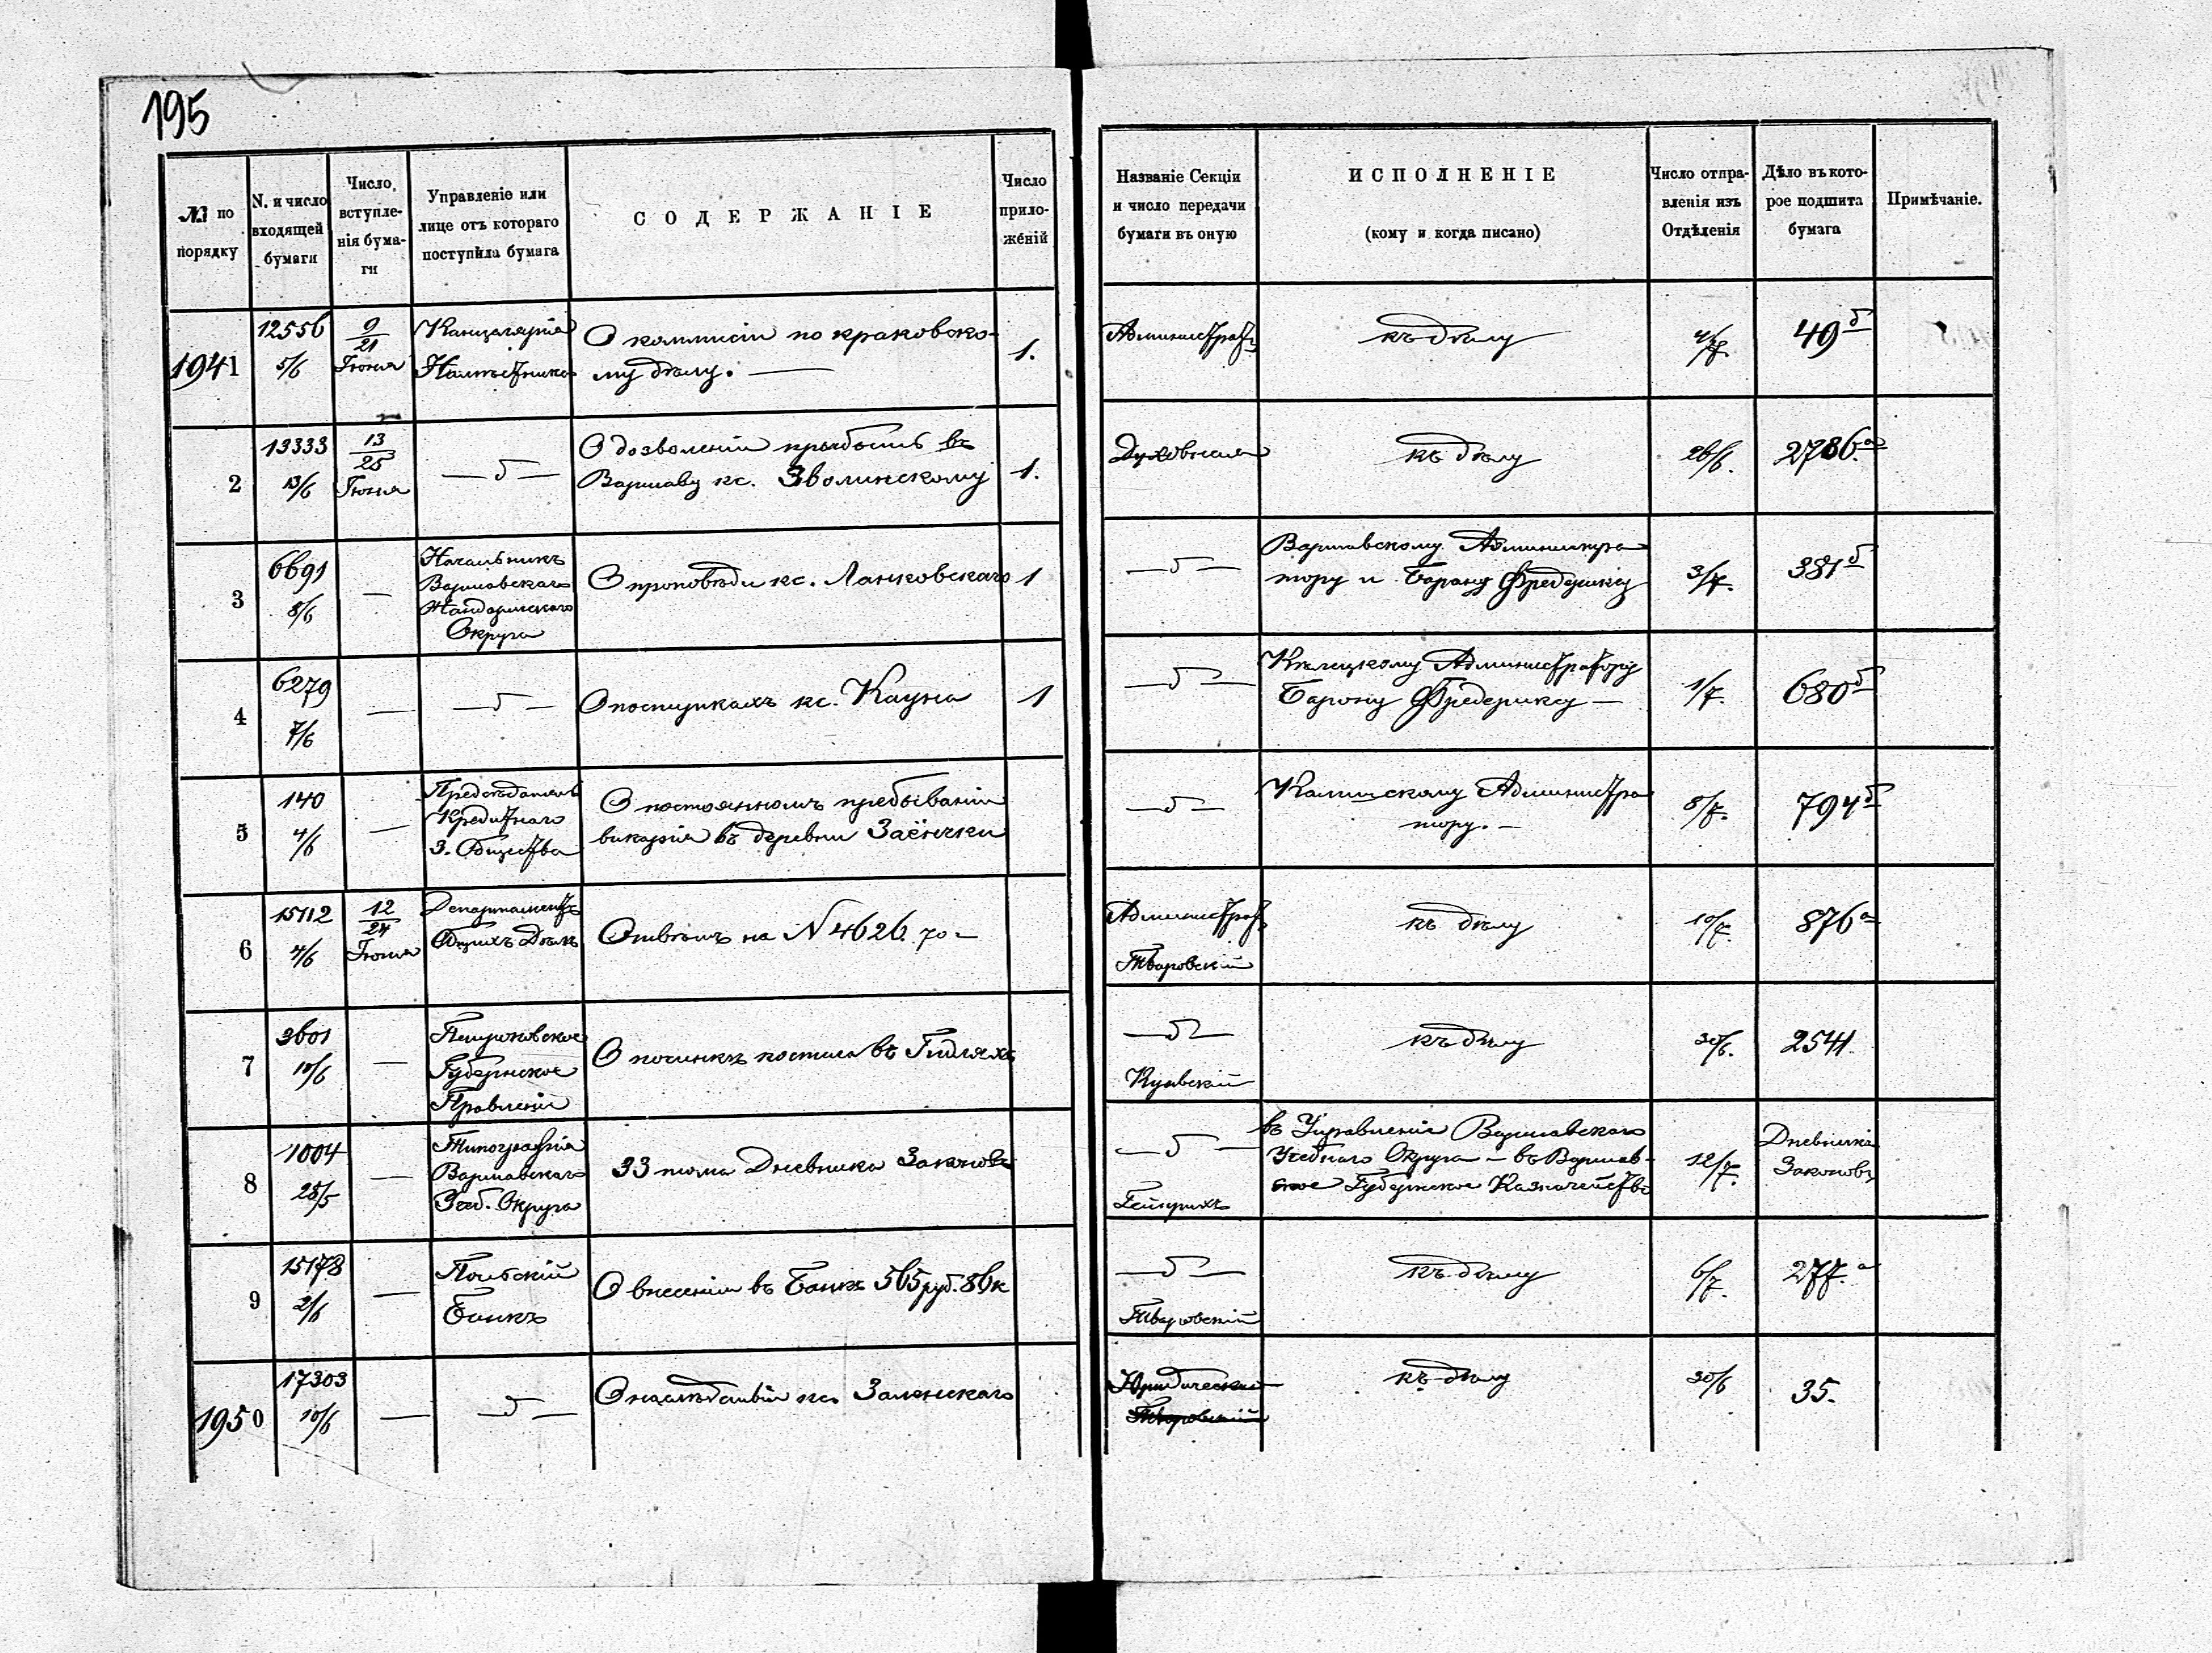 195
№ по порядку
N. и число входящей бумаги
Число вступленія бумаги
Управленіе или лице отъ котораго поступила бумага
СОДЕРЖАНІЕ
Число приложеній
Названіе Секціи и число передачи бумаги въ оную
ИСПОЛНЕНІЕ
(кому и когда писано)
Число отправленія изъ Отдѣленія
Дѣло въ которое подшита бумага
Примѣчаніе.
1941
12556
5/6
9/21
Іюня
Канцелярія
Намѣстника
О коммисіи по краковско-
му дѣлу. —
1.
Администрат
къ дѣлу
49 б
2
13333
13/6
13/25
Іюня
— б —
О дозволеніи прибыть въ
Варшаву кс. Зволинскому
1.
Духовная
къ дѣлу
26/6.
2786. а
3
6691
8/6
—
Начальникъ
Варшавскаго
Жандармскаго
Округа
О проповѣди кс. Ланковскаго
1
— б —
Варшавскому Администра
тору и Барону Фредериксу
3/7.
381 б
4
6279
7/6
—
— б —
О поступкахъ кс. Кауна
1
— б —
Кѣлецкому Администратору
Барону Фредериксу —
1/7.
680 б
5
140
4/6
—
Предсѣдатель
Кредитнаго
З. Общества
О постоянномъ пребываніи
викарія въ деревни Заёнчки
— б —
Калишскому Администра
тору. —
8/7.
794 б
6
15112
4/6
12/24
Іюня
Департаментъ
Общихъ Дѣлъ
Отвѣтъ на N 4626. 70 —
Администрат
Тваровскій
къ дѣлу
10/7.
876 а
7
3601
10/6
—
Петроковское
Губернское
Правленіе
О починкѣ костела въ Гидляхъ
— б —
Куявскій
къ дѣлу
30/6.
2541.
8
1004
28/5
—
Типографія
Варшавскаго
Учеб. Округа
33 тома Дневника Законовъ
— б —
Гейнрихъ
въ Управленіе Варшавскаго
Учебнаго Округа — въ Варшав-
ское Губернское Казначейство
12/7.
Дневника
Законовъ
9
15178
2/6
—
Польскій
Банкъ
О внесеніи въ Банкъ 565 руб. 86 к
— б —
Тваровскій
къ дѣлу
6/7.
277. а
1950
17303
10/6
—
— б —
О наслѣдствѣ кс. Заленскаго
Юридическая
Тваровскій
къ дѣлу
30/6
35.